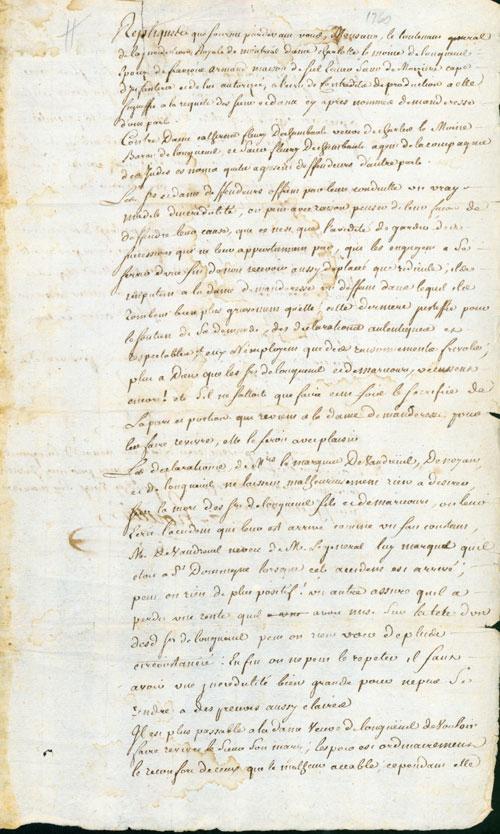 1760
Repliques que fournit pardevant vous, Messieurs, le lieutenant general
de la juridiction Royale de montreal dame charlotte le moine de longueuil
Epouse de françois armand mason de
d'infanterie et de lui autorisée, a la production a elle
a la requete des sieur et dame cy apres nommés demanderesse
d'une part
Contre Dame catherine fleury deschambault veuve de charles le Moine
Baron de longueuil et Sieur fleury Deschambault agent de la compagnie
des Indes es noms qu'ils agissent deffendeurs d'autre part.
Les srs et dame deffendeurs offrent par leur conduitte un vray
modele d'incredulité, on peut avec raison penser de leur façon de
deffendre leur cause, que ce n'est que l'avidité de garder des
successions qui ne leur appartiennent pas, qui les engagent a se
servir d'une fin de non recevoir aussy deplacé que ridicule; ils
imputent a la dame demanderesse un deffaut dans lequel ils
tombent bien plus gravement qu'elle; cette derniere produit pour
le soutien de sa demande, des declarations autentiques et
respectables; eux n'employent que des raisonnements frivoles,
plut a Dieu que les srs de longueuil et demaricour, vecussent
encor! et s'il ne falloit que faire le sacrifice de
la part et portion qui revient a la dame demanderesse pour
les faire revivre, elle le feroit avec plaisir
Les declarations de Mrs le marquis De Vaudreuil, De noyan
et de longueuil ne laissent malheureusement rien a desirer
sur la mort des srs de longueuil fils et demaricour, ou leur
l'accident qui leur est arrivé comme un fait constant
M. De Vaudreuil neveu de M. le general luy marque qu'il
etoit a St Domingue lorsque cet accident est arrivé;
peut on rien de plus positif! un autre assure qu'il a
perdu une rente qu'il avoit mise sur la tete d'un
desd. srs de longueuil peut on rien voir de plus
circonstancié: Enfin on ne peut le repeter il faut
avoir une incredulité bien grande pour ne pas se
rendre a des preuves aussy claires
Il est plus passable a la dame veuve de longueuil de vouloir
faire revivre le sieur son mary; l'espoir est ordinairement
le reconfort de ceux que le malheur accable cependant elle